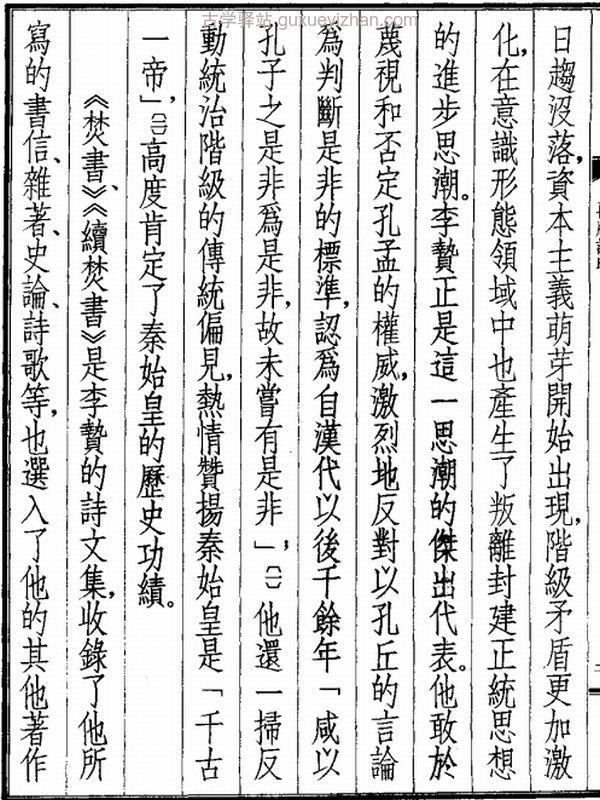 古学驿站_guxueyizhan.com
日趨沒落，資本主義萌芽開始出現，階級矛盾更加激
化，在意識形態領域中也產生了叛離封建正統思想
的進步思潮。李贄正是這一思潮的傑出代表。他敢於
蔑視和否定孔孟的權威，激烈地反對以孔丘的言論
爲判斷是非的標準，認爲自漢代以後千餘年「咸以
孔子之是非爲是非，故未嘗有是非」；〔一〕他還一掃反
動統治階級的傳統偏見，熱情贊揚秦始皇是「千古
一帝」，〔二〕高度肯定了秦始皇的歷史功績。
《焚書》、《續焚書》是李贄的詩文集，收錄了他所
寫的書信、雜著、史論、詩歌等，也選入了他的其他著作